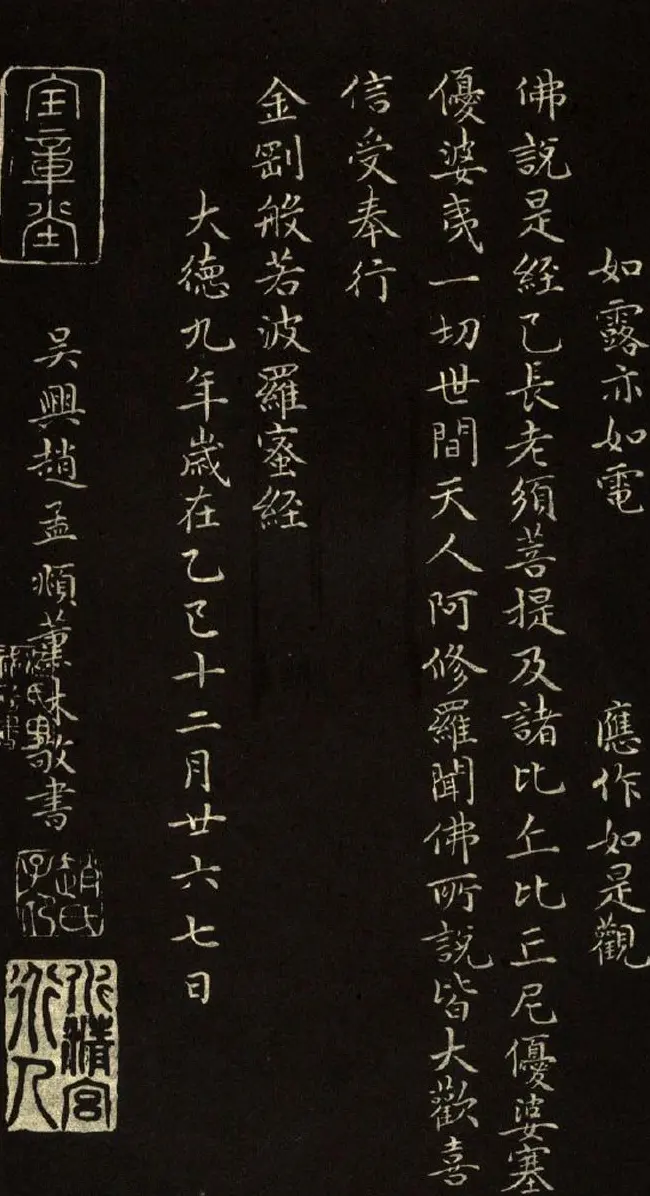 如露亦如電 應作如是觀
佛說是經已長老須菩提及諸比丘比丘尼優婆塞
優婆夷一切世間天人阿修羅聞佛所說皆大歡喜
信受奉行
金剛般若波羅蜜經
大德九年歲在乙巳十二月廿六七日
吳興趙孟頫薰沐敬書
趙氏子昂
水精宮道人